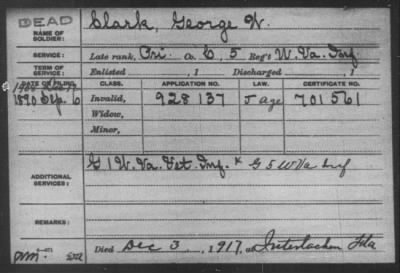 DEAD
NAME OF SOLDIER: Clark, George W.
SERVICE: Late rank, Pri. Co. C, 5 Reg't W. Va. Inf.
TERM OF SERVICE: Enlisted , 1 Discharged , 1
DATE OF FILING. CLASS. APPLICATION NO. LAW. CERTIFICATE NO.
1890 Sep. 6 Invalid, 928137 J age 701561
Widow,
Minor,
ADDITIONAL SERVICES: G 1 W. Va. Vet. Inf. * G 5 W Va Inf
REMARKS:
Died Dec 3, 1917, at Interlachen Fla